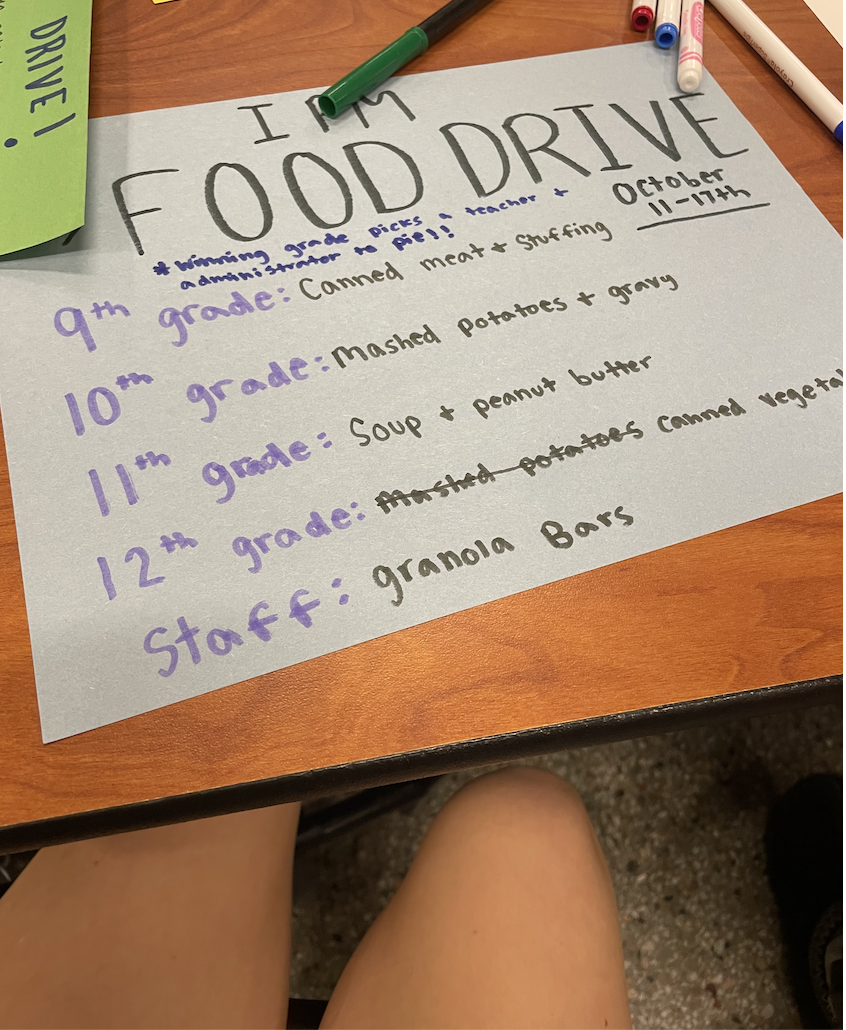 DRIVE!
I AM
FOOD DRIVE
October
11-17th
*Winning grade picks a teacher +
administrator to pie!!
9th grade: Canned meat + Stuffing
10th grade: Mashed potatoes + gravy
11th grade: Soup + peanut butter
12th grade: Mashed potatoes canned vegetal
Staff: granola Bars